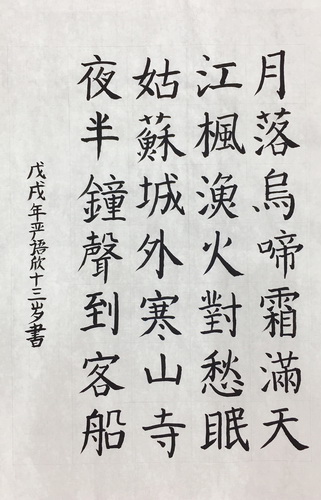 月落烏啼霜滿天
江楓漁火對愁眠
姑蘇城外寒山寺
夜半鐘聲到客船
戊戌年严语欣十三岁書